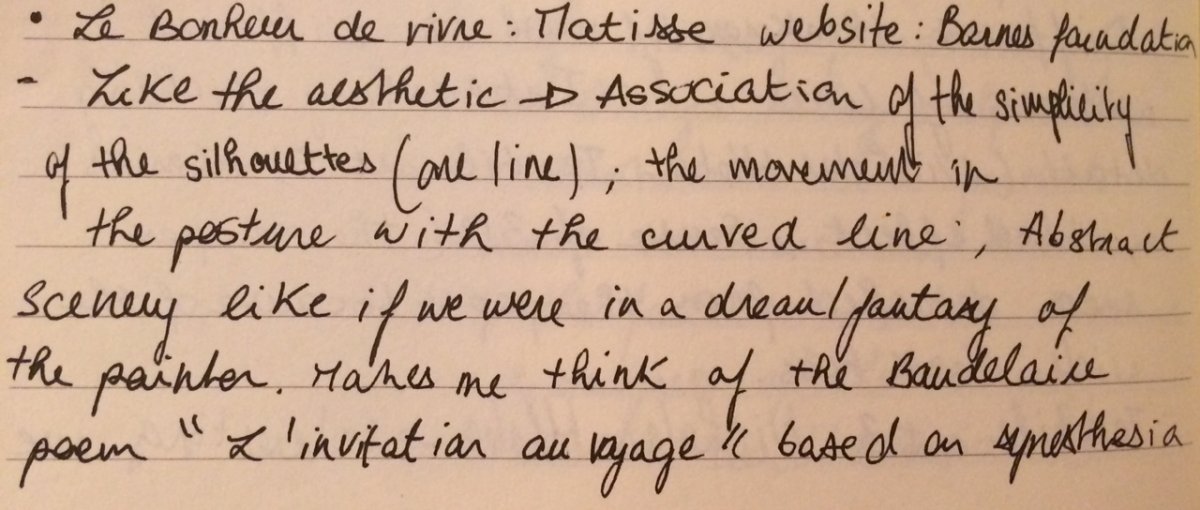 • Le Bonheur de vivre : Matisse website : Barnes foundation
- Like the aesthetic → Association of the simplicity
of the silhouettes (one line) ; the movement in
the posture with the curved line ; Abstract
Scenery like if we were in a dream/fantasy of
the painter. Makes me think of the Baudelaire
poem " L'invitation au voyage " based on synesthesia